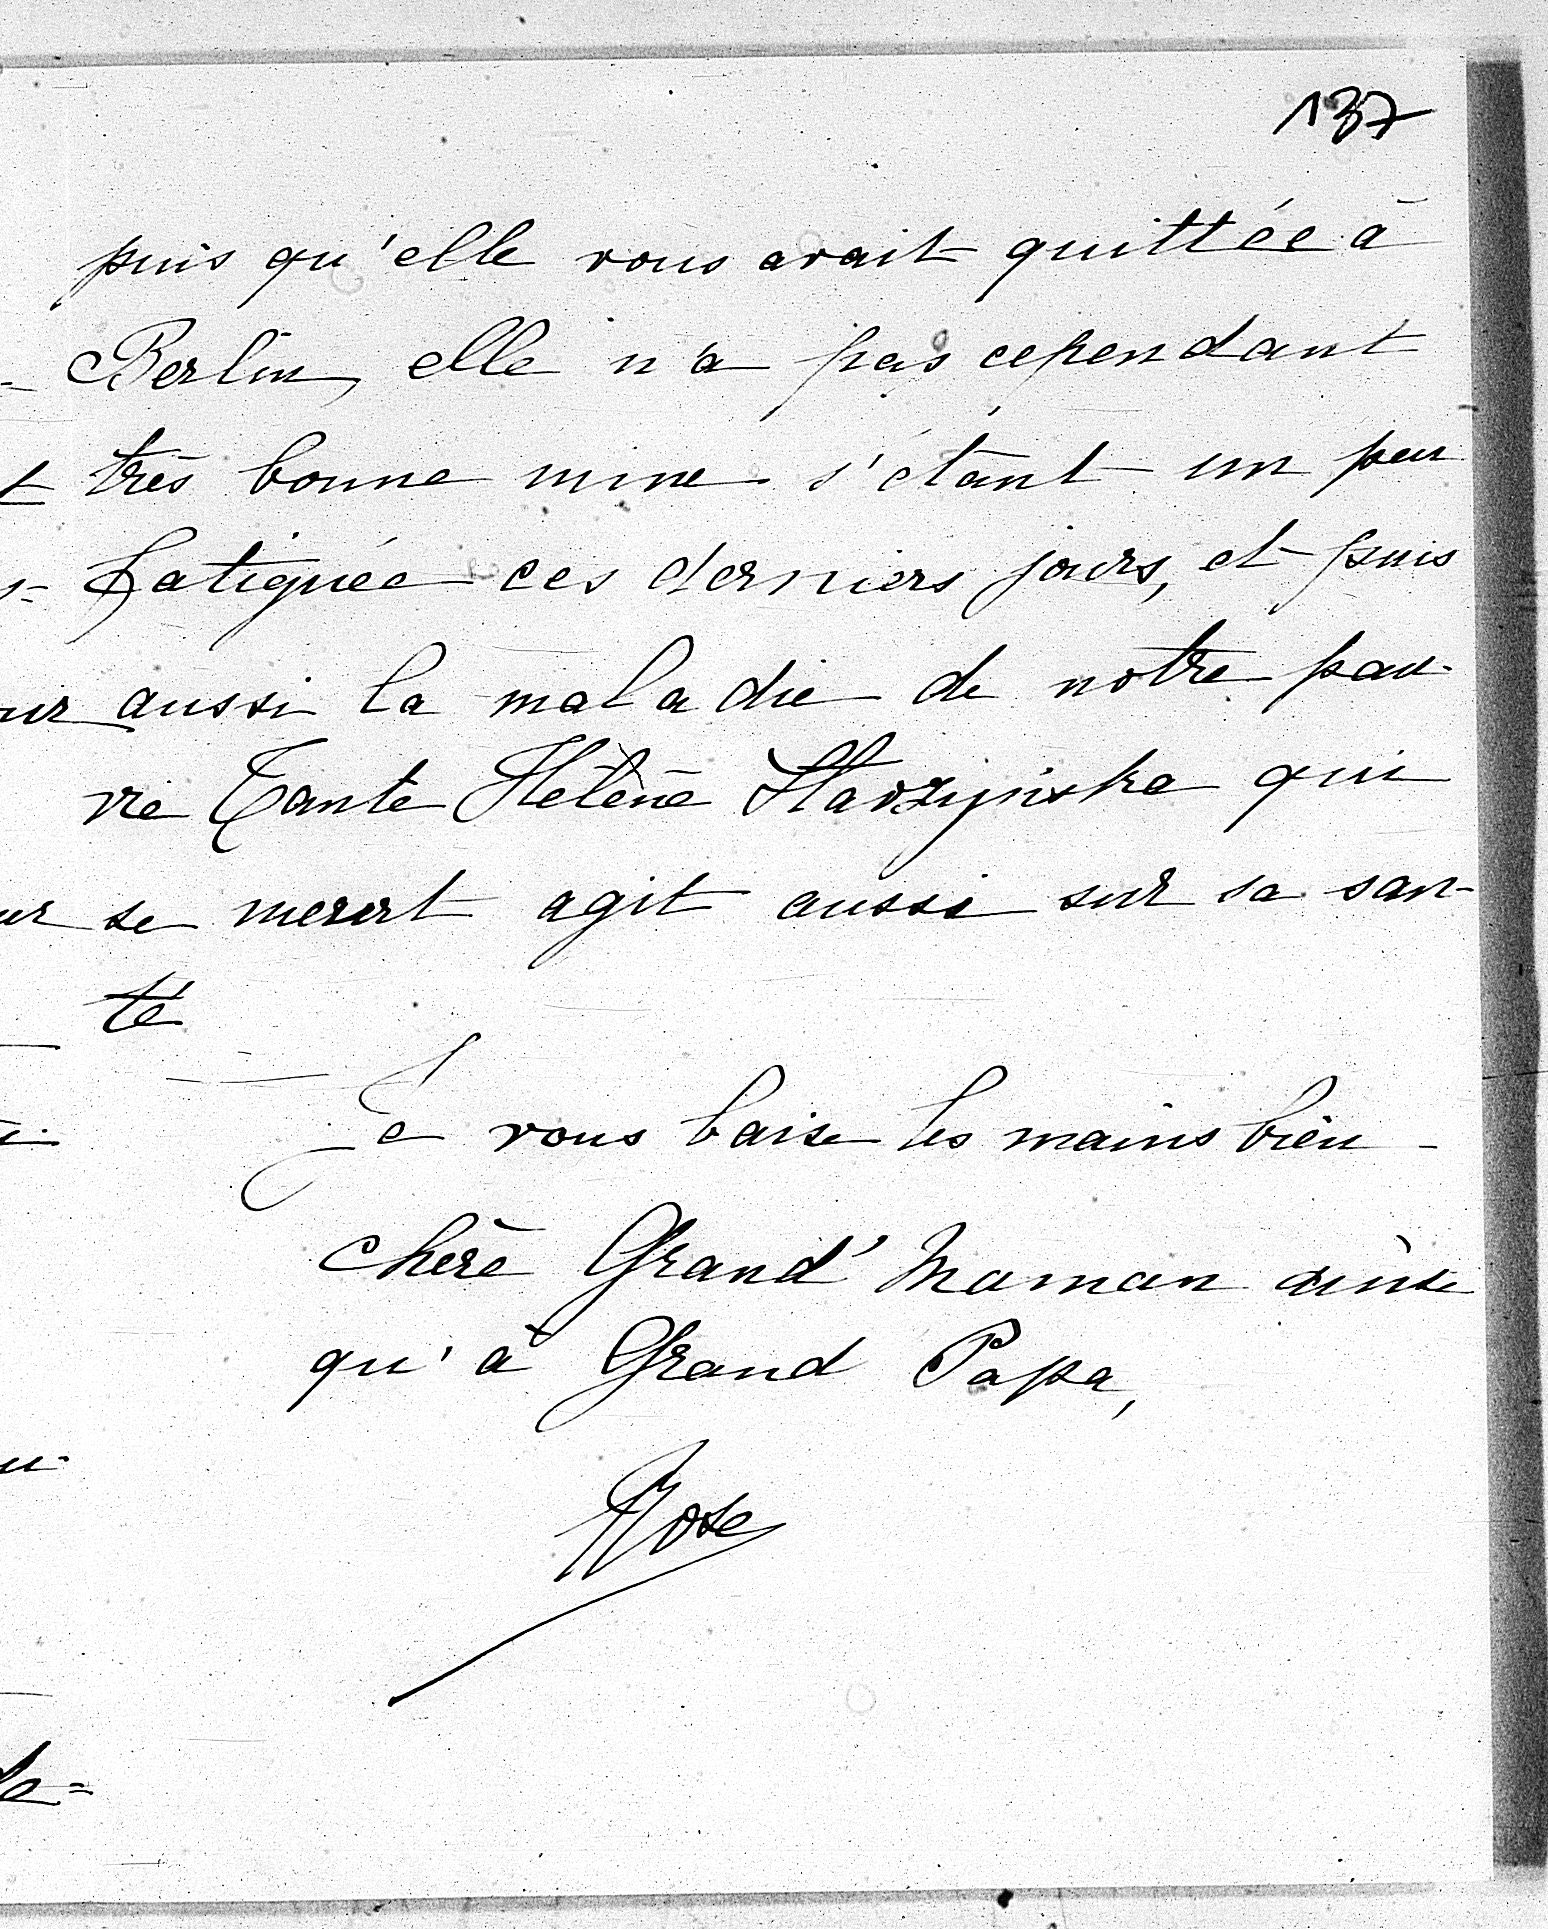 137
puis qu'elle vous avait quittée à
Berlin, elle n'a pas cependant
très bonne mine s'étant un peu
fatiguée ces derniers jours, et puis
aussi la maladie de notre pau-
vre Tante Hélène qui
se meurt agit aussi sur sa san-
té
Je vous baise les mains bien
chère Grand' Maman ainsi
qu'à Grand Papa,
Rose